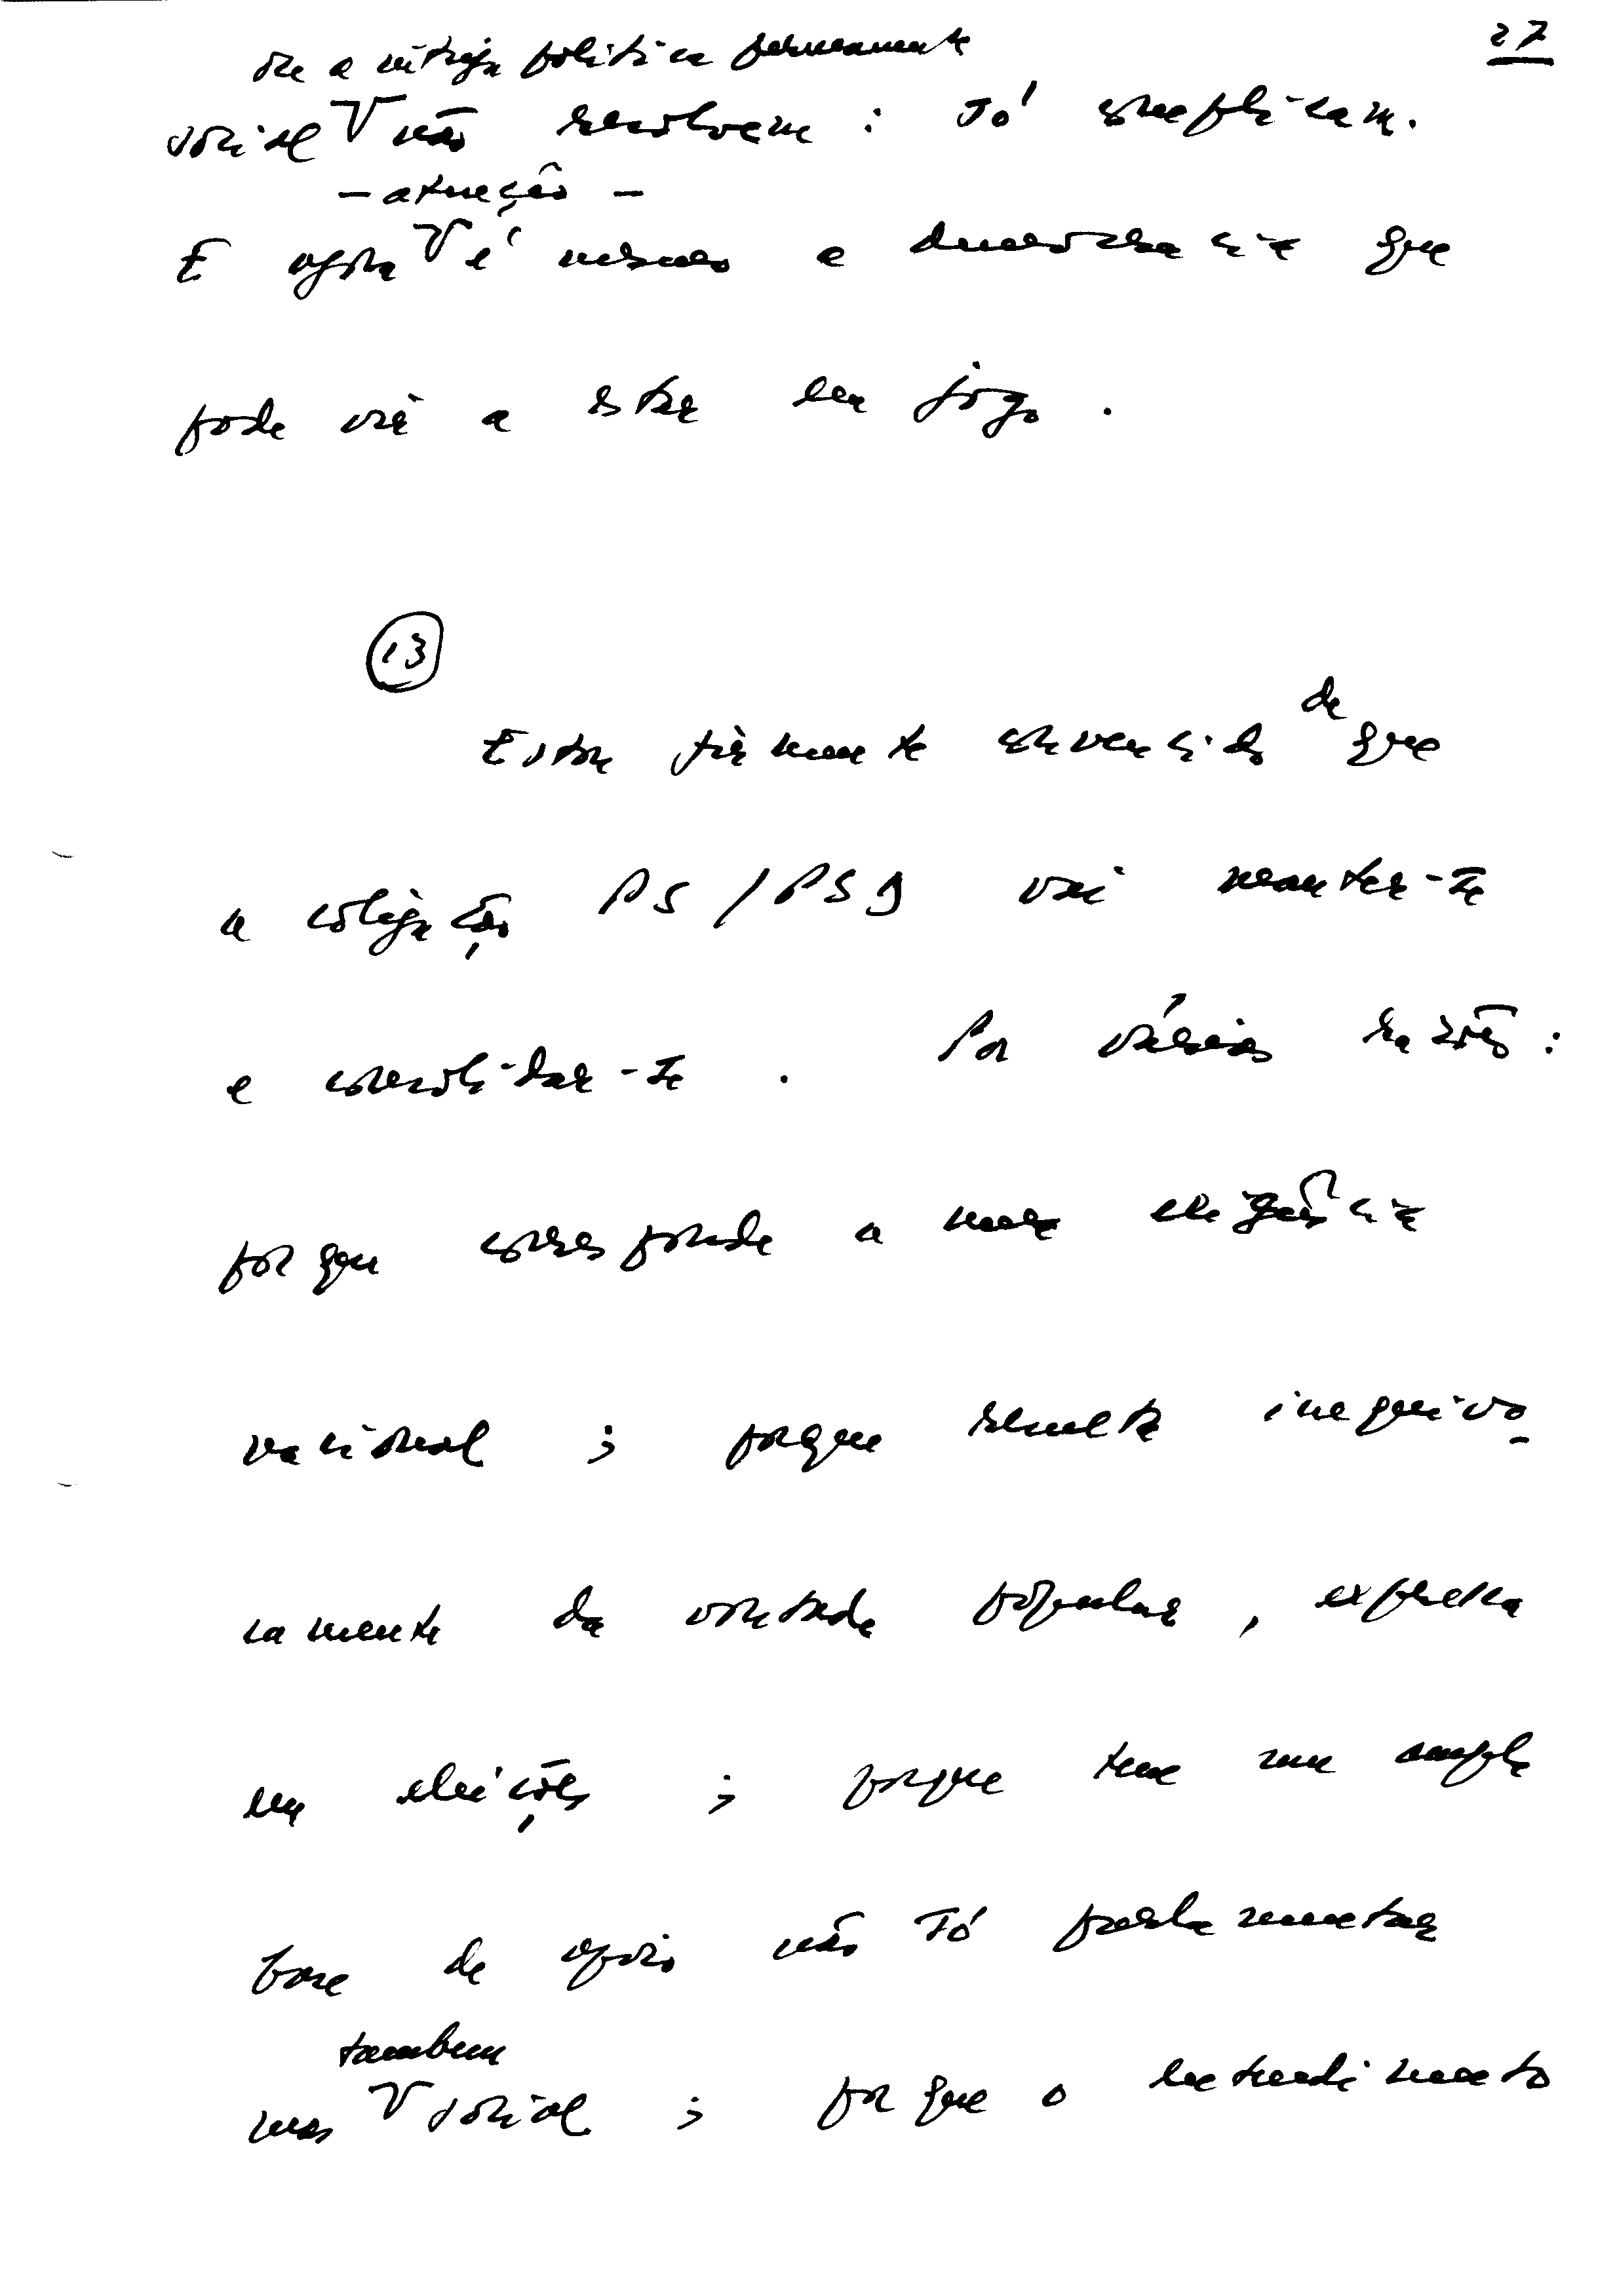 27
ou a intriga política permanente
social V não resolvem: só complicam.
– atenção –
E agora V é mesmo a democracia que
pode vir a estar em jogo.
13
de
Estou firmemente convencido que
a coligação PS/PSD vai manter-se
e consolidar-se. Por várias razões:
porque corresponde a uma exigência
nacional; porque resulta inequivo-
camente da vontade popular, expressa
em eleições; porque tem uma ampla
base de apoio não só parlamentar
tambem
mas V social; porque o entendimento